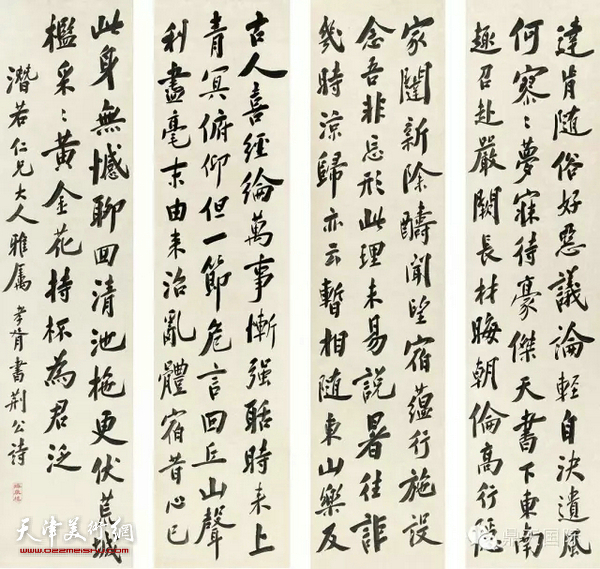 達肯隨俗好惡議論輕自決遺風
何寥〻夢寐待豪傑天書下東南
趣召赴嚴闕長材晦朝倫高行隱
家閥新除疇聞望宿蘊行施設
念吾非忘形此理未易說暑往詎
幾時涼歸亦云暫相隨東山樂及
古人喜經綸萬事慚強聒時來上
青冥俯仰但一節危言回丘山聲
利盡毫末由來治亂體宿昔心已
此身無憾聊回清池拖更伏荒城
檻采〻黃金花持杯為君泛
潛若仁兄大人雅屬 孝胥書荊公詩
天津美術網
www.022meishu.com
鼎天国际